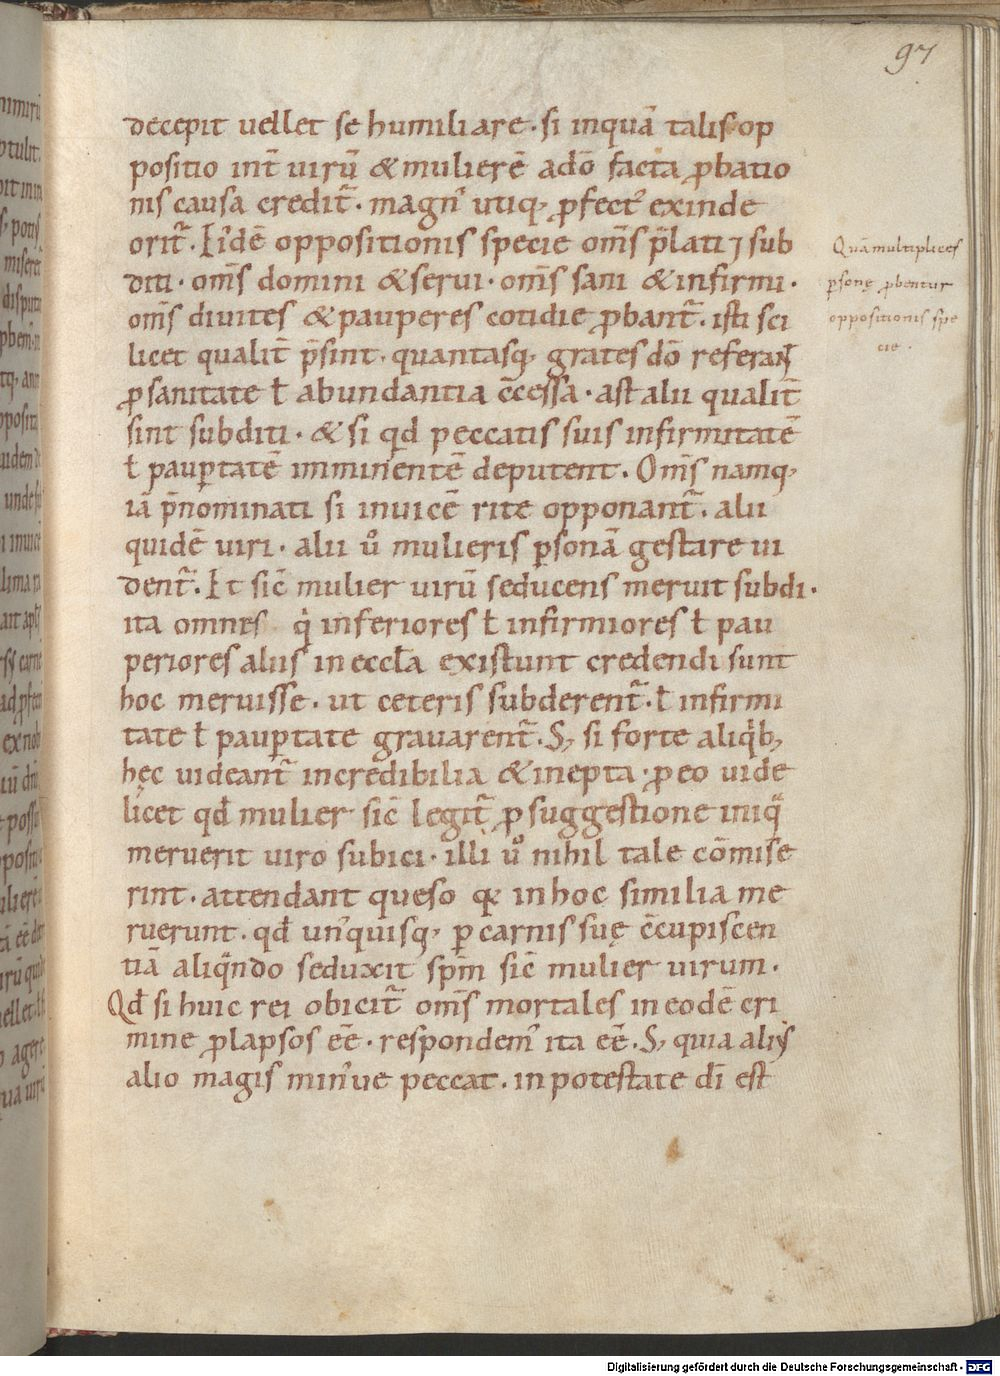 97
decepit uellet se humiliare. si inquā talis op
positio int̄ uirū & mulierē adō facta ꝓbatio
nis causa credit̄. magn᾽ utiq, ꝓfect᾽ exinde
orit̄. Eiᵈē oppositionis specie om̄s p̄lati ⁊ sub
diti. om̄s domini & serui. om̄s sani & infirmi.
om̄s diuites & pauperes cotidie ꝓbant̄. isti sci
licet qualit̄ p̄sint. quantasq, grates dō referant
ꝓ sanitate ł abundantia c̄cessa. ast alii qualit̄
sint subditi. & si qd peccatis suis infirmitatē
ł paup̱tatē imminentē deputent. Om̄s namq,
iā p̄nominati si inuicē rite opponant̄. alii
quidē uiri. alii u᷎ mulieris p̱sonā gestare ui
dent̄. Et sic̄ mulier uirū seducens meruit subdi.
ita omnes q̇ inferiores ł infirmiores ł pau
periores aliis in eccła existunt credendi sunt
hoc meruisse. ut ceteris subderent̄. ł infirmi
tate ł paup̱tate grauarent̄. S, si forte aliq̇b,
hęc uideant̄ incredibilia & inepta. ꝓ eo uide
licet qđ mulier sic̄ legit̄ ꝓ suggestione iniq̄
meruerit uiro subici. illi u᷎ nihil tale cōmise
rint. attendant queso qꝛ in hoc similia me
ruerunt. qđ un᾽quisq, p̱ carnis suę c̄cupiscen
tiā aliq̄ndo seduxit sp̄m sic̄ mulier uirum.
Qđ si huic rei obicit̄ om̄s mortales in eodē cri
mine ꝓlapsos eē̄. respondem᾽ ita eē̄. S, quia alius
alio magis min᾽ue peccat. in potestate dī est
Quā multiplices
p̱sonę ꝓbentur
oppositionis spe
cie.
Digitalisierung gefördert durch die Deutsche Forschungsgemeinschaft - DFG